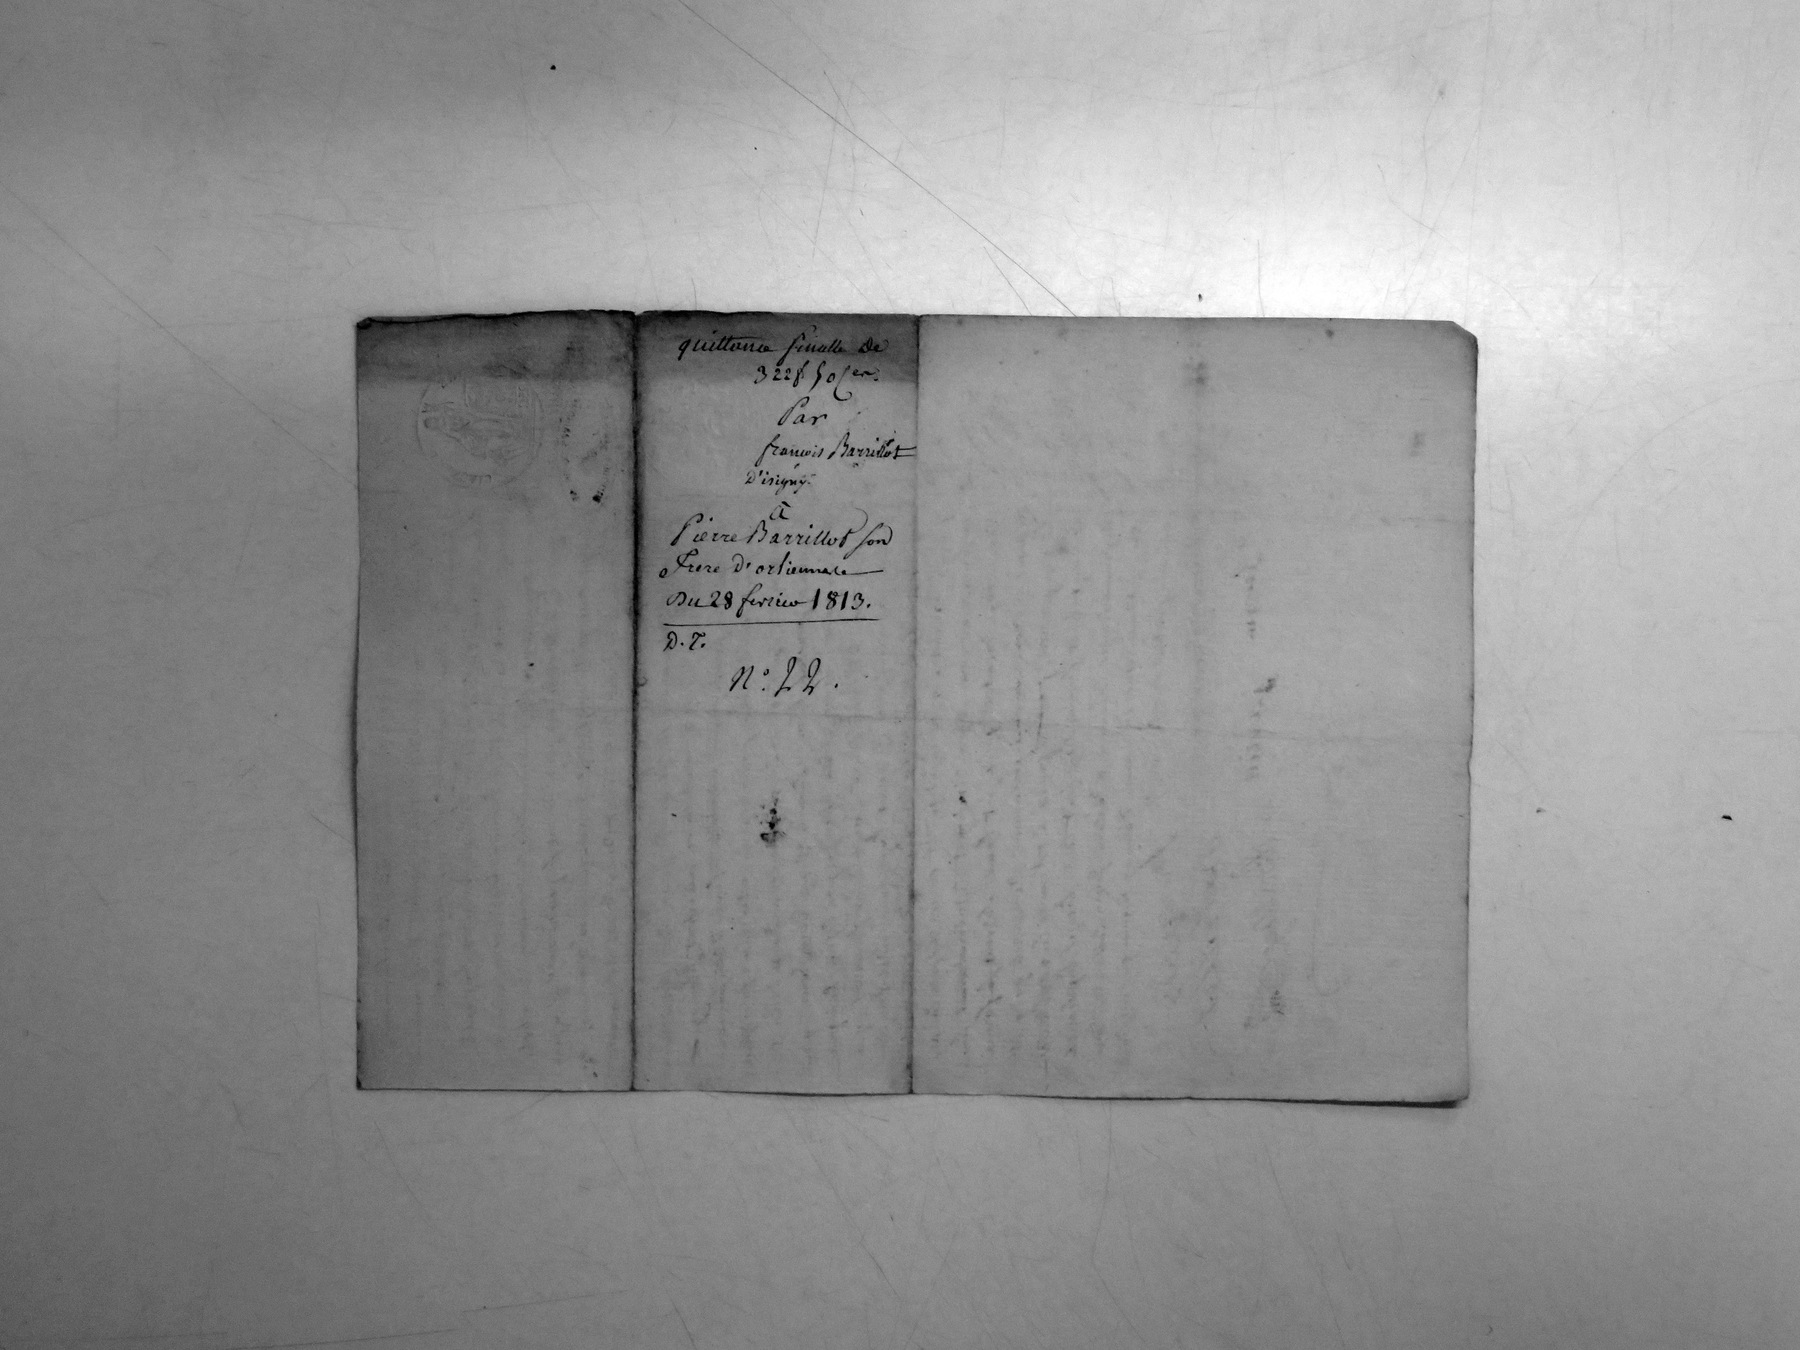 quittance finalle De
322f 50 Cen.
Par
francois Barrillot
D'isigny
à
Pierre Barrillot son
Frere D'orsiennese
Du 28 fevrier 1813.
D. T.
N.o 22.